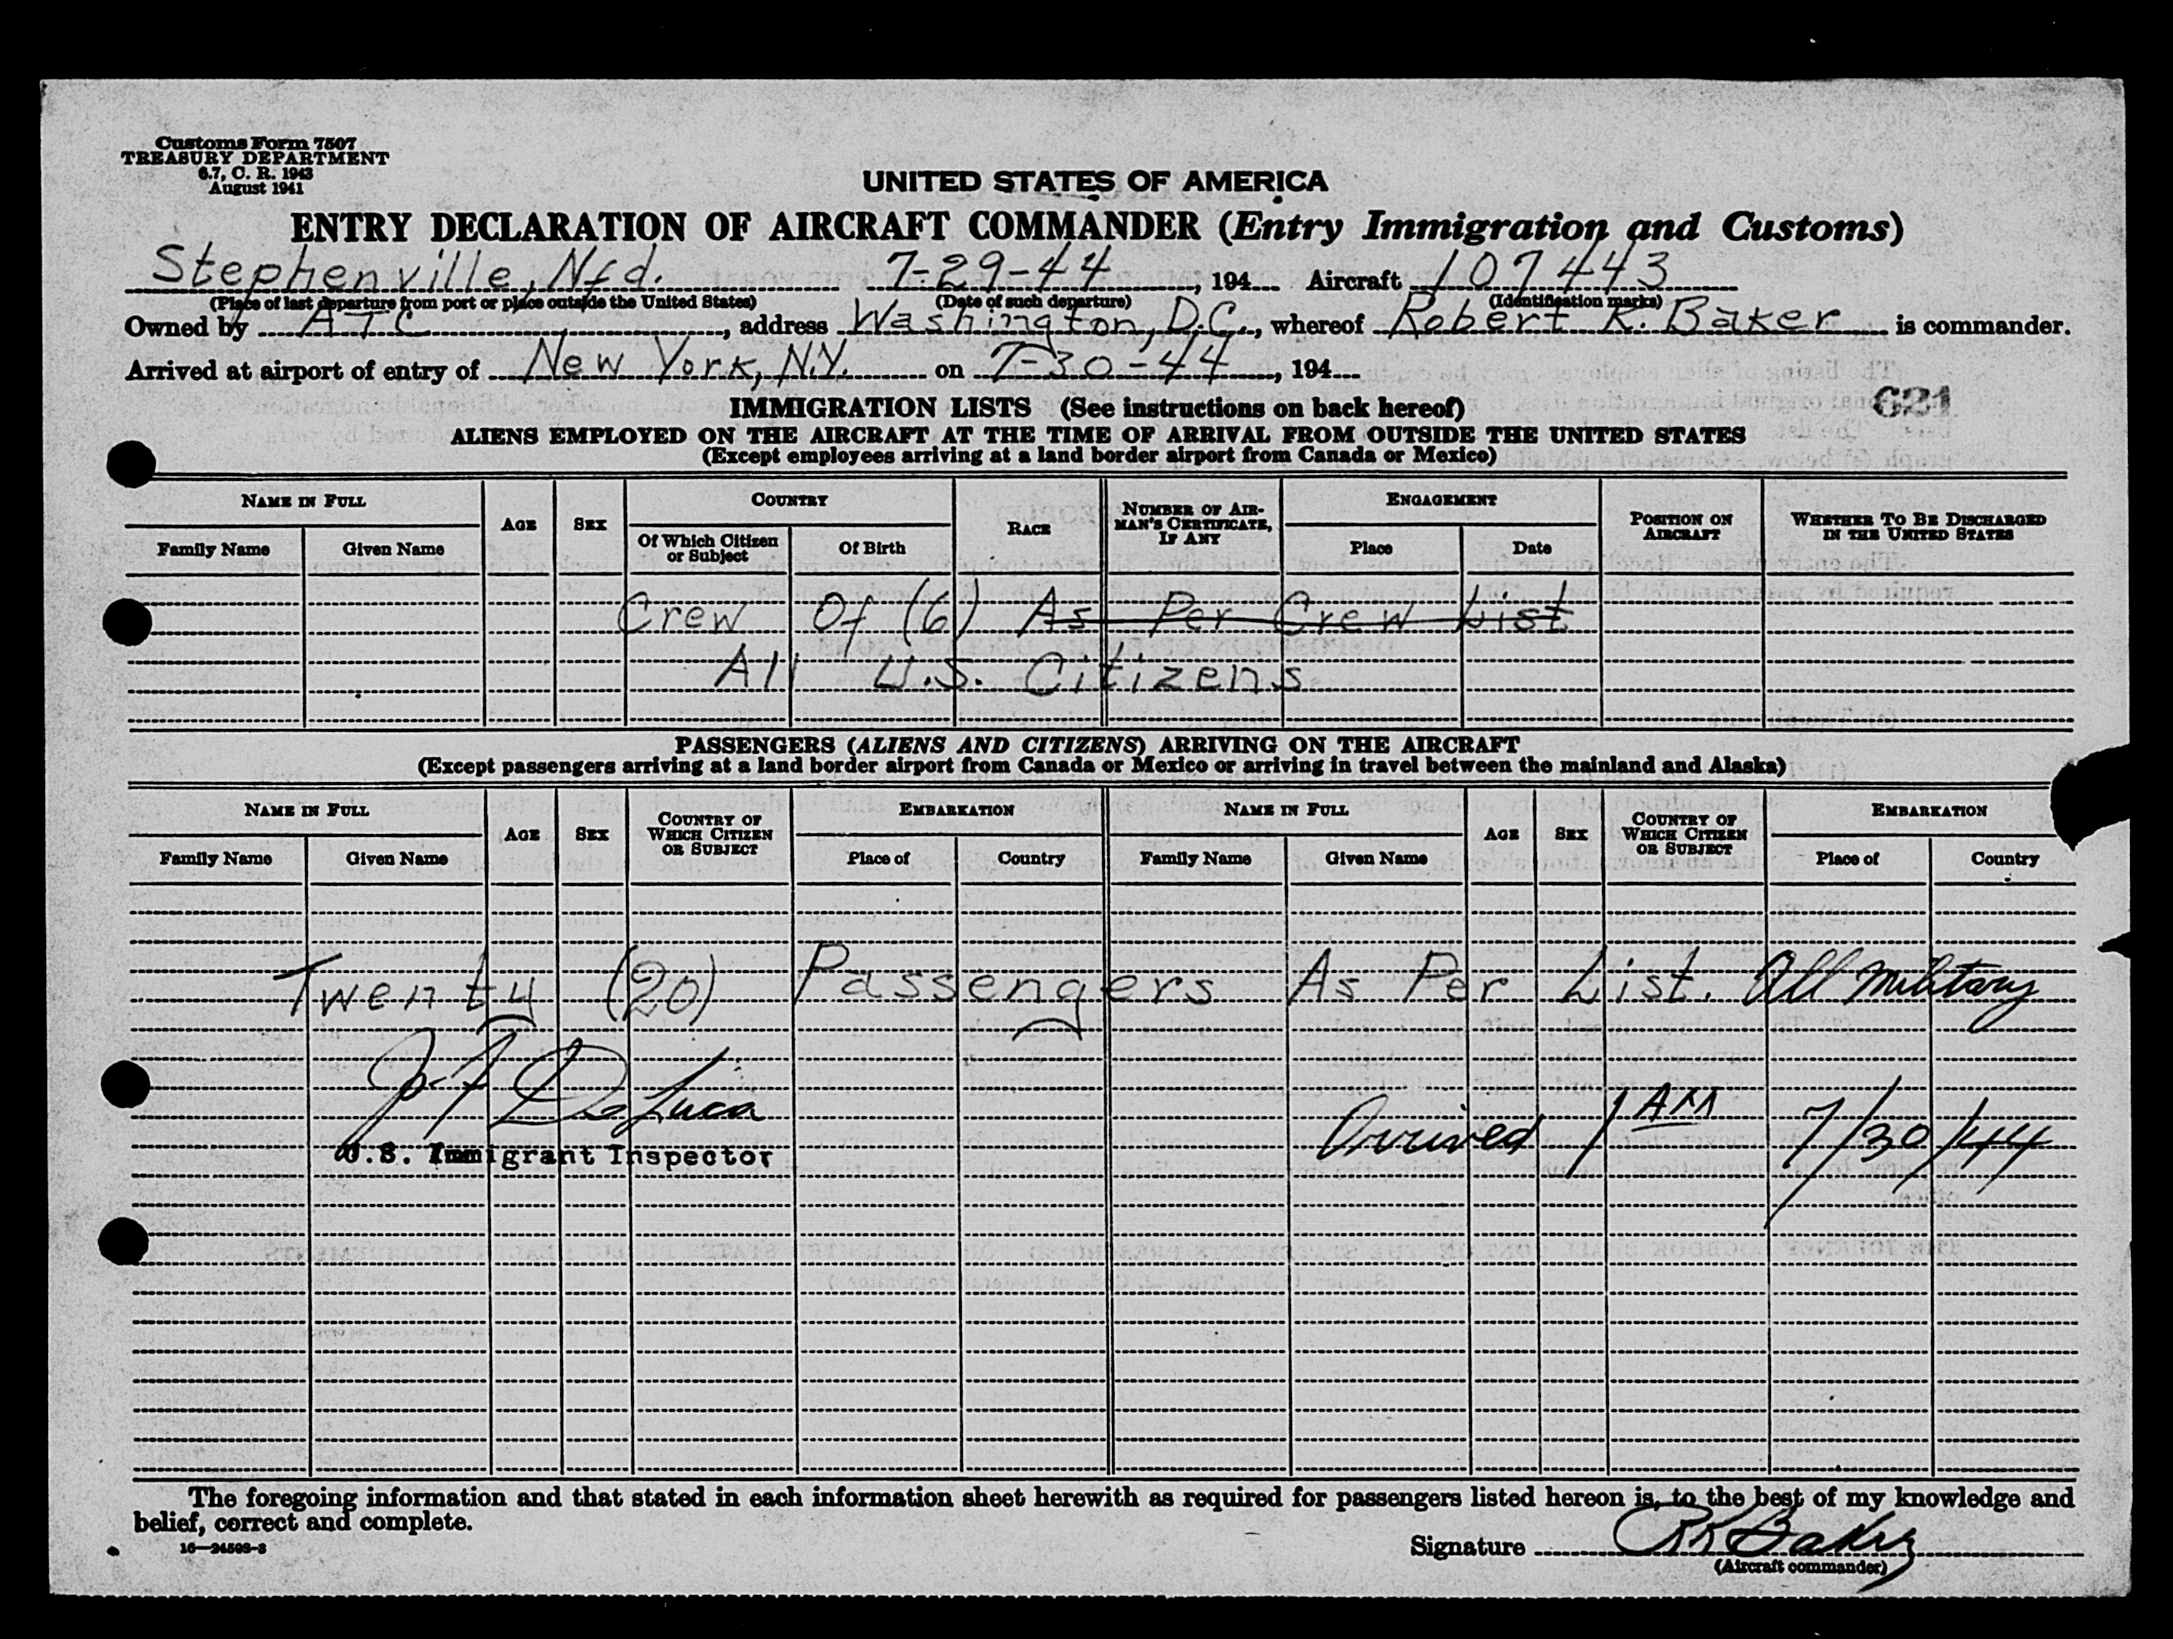 Customs Form 7507
TREASURY DEPARTMENT
6.7, C. R. 1943
August 1941
UNITED STATES OF AMERICA
ENTRY DECLARATION OF AIRCRAFT COMMANDER (Entry Immigration and Customs)
Stephenville, Nfd. 7-29-44, 194 Aircraft 107443
(Place of last departure from port or place outside the United States) (Date of such departure) (Identification marks)
Owned by ATC, address Washington, D.C., whereof Robert K. Baker is commander.
Arrived at airport of entry of New York, N.Y. on 7-30-44, 194
621
IMMIGRATION LISTS (See instructions on back hereof)
ALIENS EMPLOYED ON THE AIRCRAFT AT THE TIME OF ARRIVAL FROM OUTSIDE THE UNITED STATES
(Except employees arriving at a land border airport from Canada or Mexico)
NAME IN FULL AGE SEX COUNTRY RACE NUMBER OF AIRMAN'S CERTIFICATE, IF ANY ENGAGEMENT POSITION ON AIRCRAFT WHETHER TO BE DISCHARGED IN THE UNITED STATES
Family Name Given Name Of Which Citizen or Subject Of Birth Place Date
Crew Of (6) As Per Crew List
All U.S. Citizens
PASSENGERS (ALIENS AND CITIZENS) ARRIVING ON THE AIRCRAFT
(Except passengers arriving at a land border airport from Canada or Mexico or arriving in travel between the mainland and Alaska)
NAME IN FULL AGE SEX COUNTRY OF WHICH CITIZEN OR SUBJECT EMBARKATION NAME IN FULL AGE SEX COUNTRY OF WHICH CITIZEN OR SUBJECT EMBARKATION
Family Name Given Name Place of Country Family Name Given Name Place of Country
Twenty (20) Passengers As Per List. All Military
J. F. DeLuca
Arrived 1 AM 7/30/44
U.S. Immigrant Inspector
The foregoing information and that stated in each information sheet herewith as required for passengers listed hereon is, to the best of my knowledge and
belief, correct and complete.
16—24598-3
Signature RK Baker
(Aircraft commander)